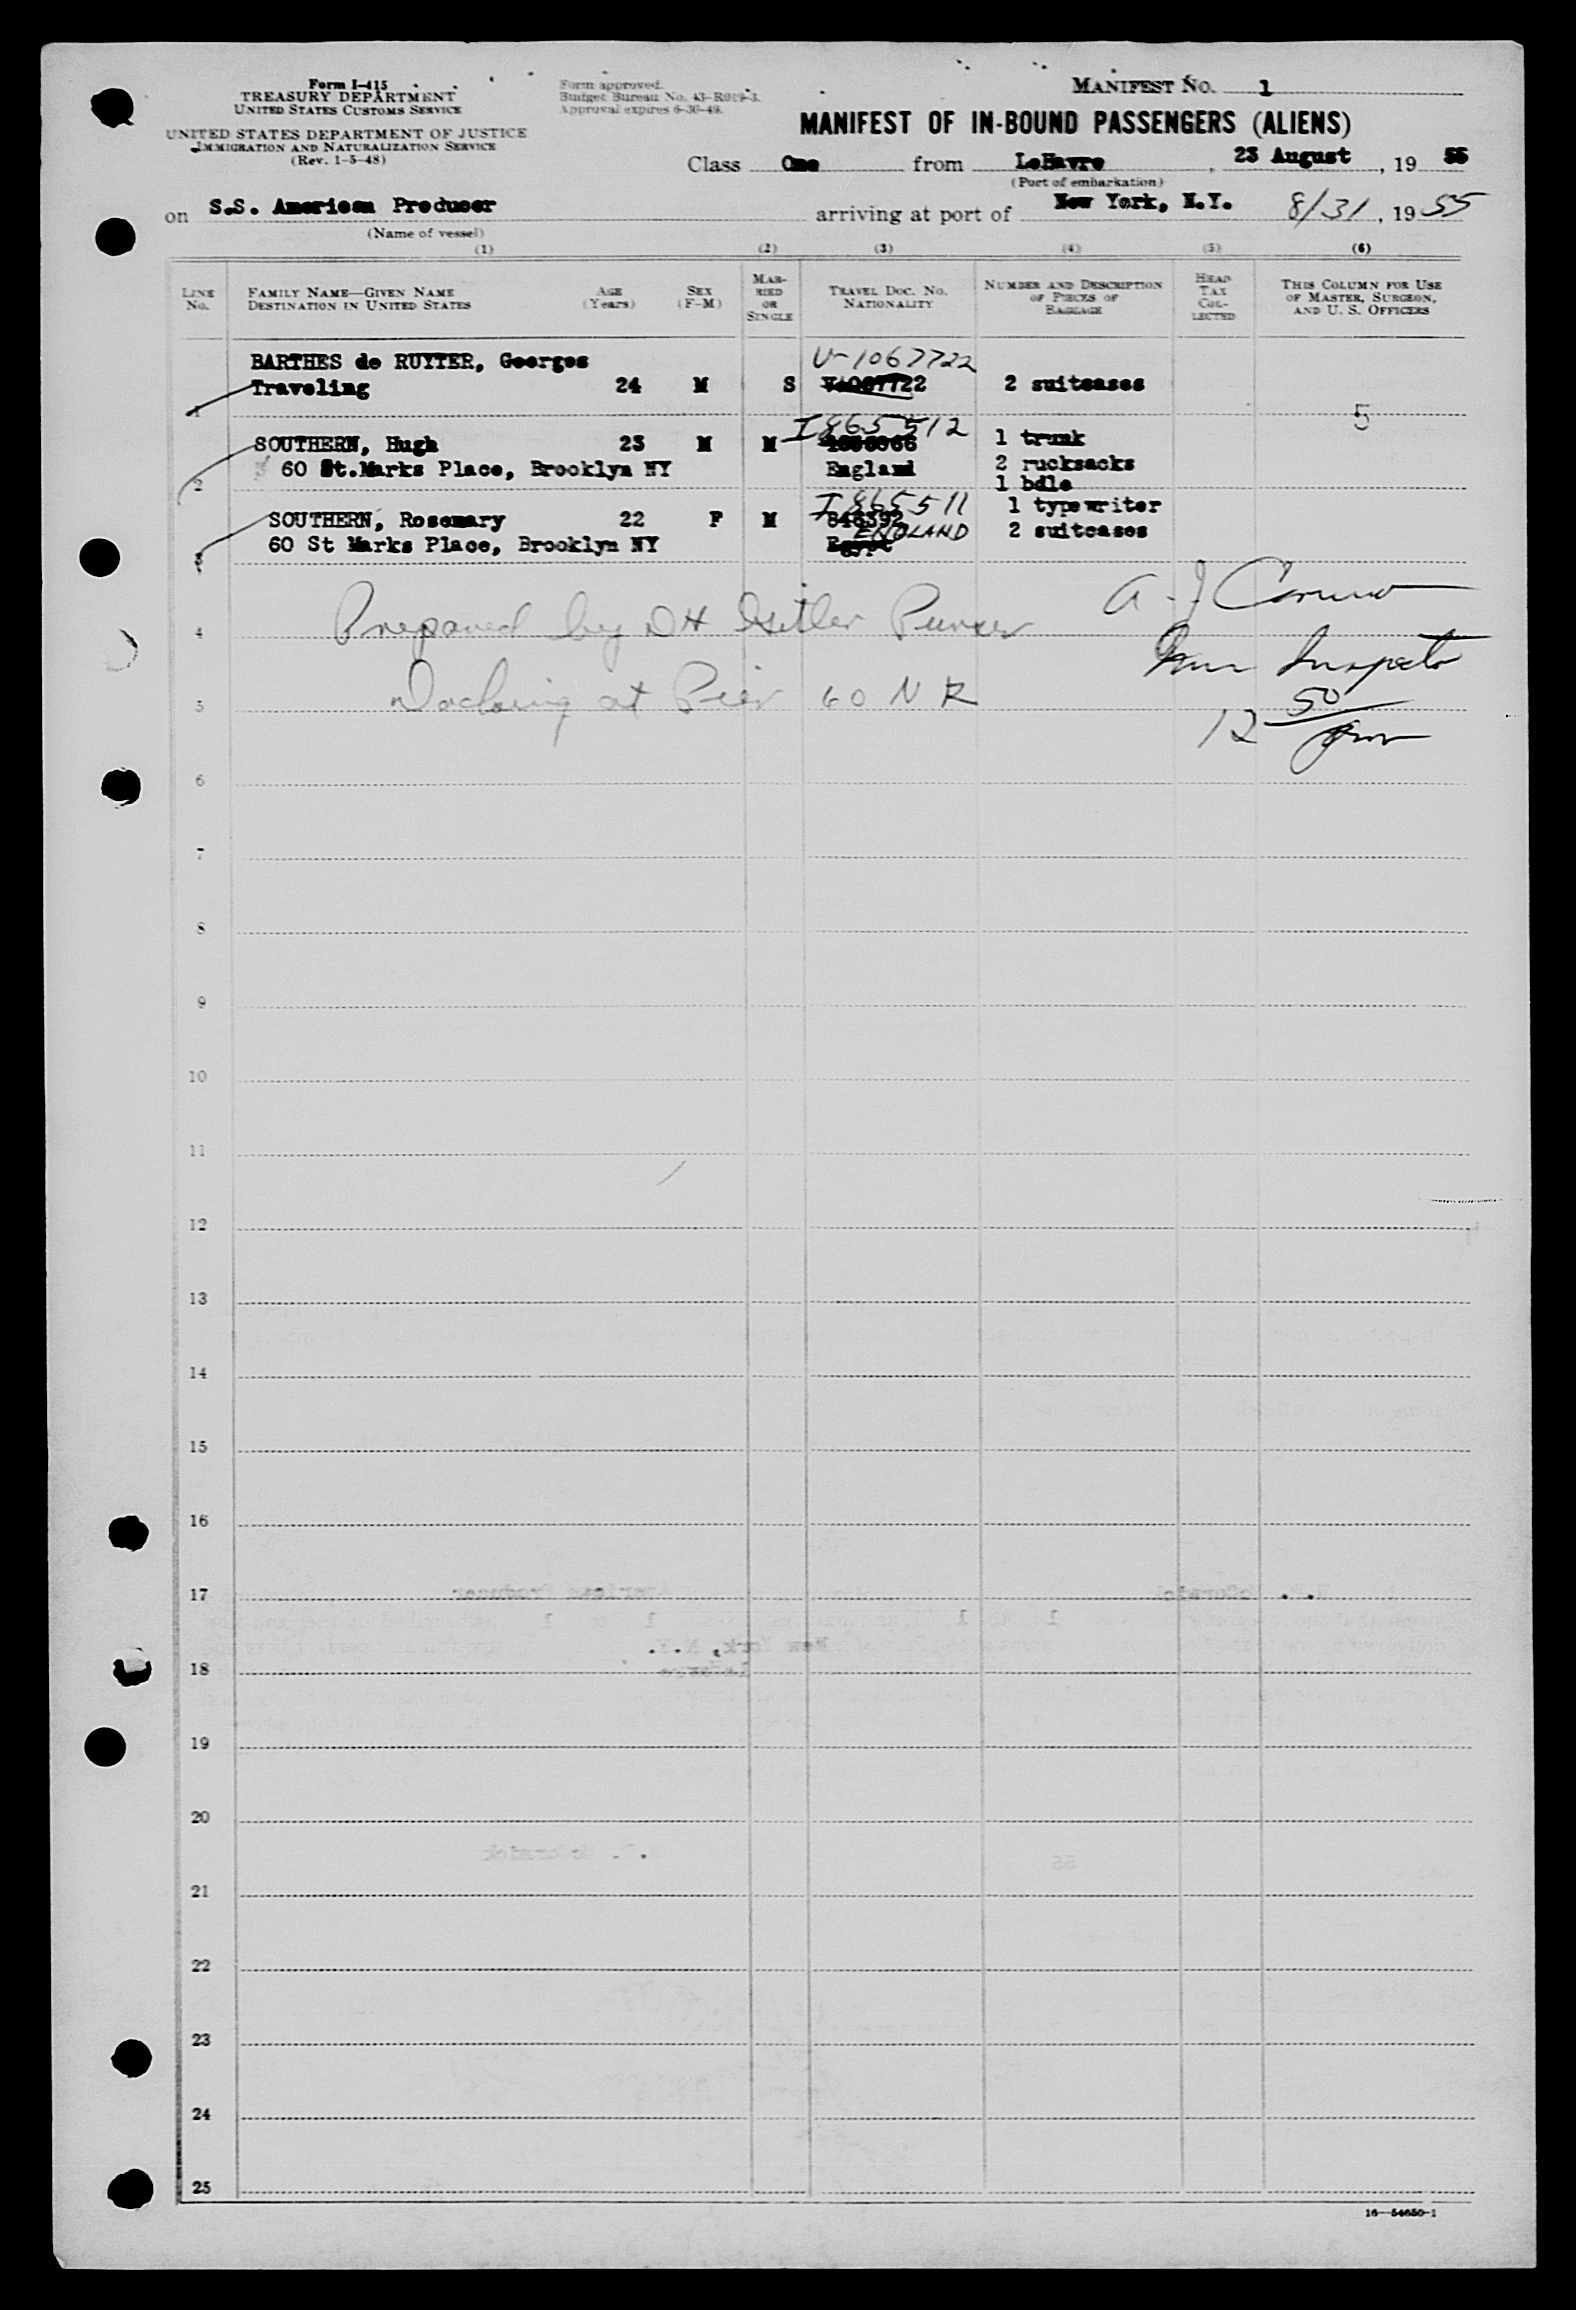 Form I-415
TREASURY DEPARTMENT
UNITED STATES CUSTOMS SERVICE
UNITED STATES DEPARTMENT OF JUSTICE
IMMIGRATION AND NATURALIZATION SERVICE
(Rev. 1-5-48)
Form approved.
Budget Bureau No. 43-R019-3.
Approval expires 6-30-49.
MANIFEST NO. 1
MANIFEST OF IN-BOUND PASSENGERS (ALIENS)
Class One from LeHavre, 23 August, 19 55
(Port of embarkation)
on S.S. American Producer arriving at port of New York, N.Y. 8/31, 19 55
(Name of vessel)
(1) (2) (3) (4) (5) (6)
LINE No.
FAMILY NAME—GIVEN NAME
DESTINATION IN UNITED STATES
AGE (Years)
SEX (F-M)
MARRIED OR SINGLE
TRAVEL DOC. NO.
NATIONALITY
NUMBER AND DESCRIPTION OF PIECES OF BAGGAGE
HEAD TAX COLLECTED
THIS COLUMN FOR USE OF MASTER, SURGEON, AND U. S. OFFICERS
BARTHES de RUYTER, Georges V-1067722
1 Traveling 24 M S V1067722 2 suitcases
5
I865512
SOUTHERN, Hugh 23 M M 1 trunk
60 St.Marks Place, Brooklyn NY England 2 rucksacks
2 1 bdle
I865511 1 typewriter
SOUTHERN, Rosemary 22 F M 848392 2 suitcases
ENGLAND
3 60 St Marks Place, Brooklyn NY Egypt
Prepared by DH Purser
A. J.
Imm Inspector
Docking at Pier 60 NR
12 50 pm
4
5
6
7
8
9
10
11
12
13
14
15
16
17
18
19
20
21
22
23
24
25
16—54650-1